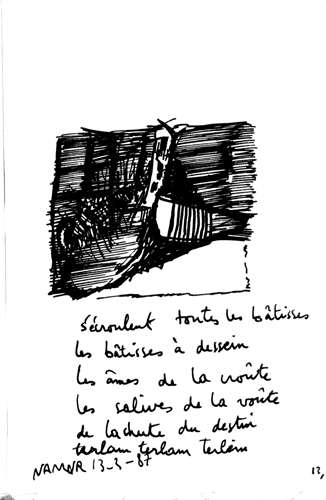 s'éroulent toutes les bâtisses
les bâtisses à dessein
les âmes de la voûte
les salives de la voûte
de la chute du destin
terlam terlam terlam
NAMUR 13-3-87
13,